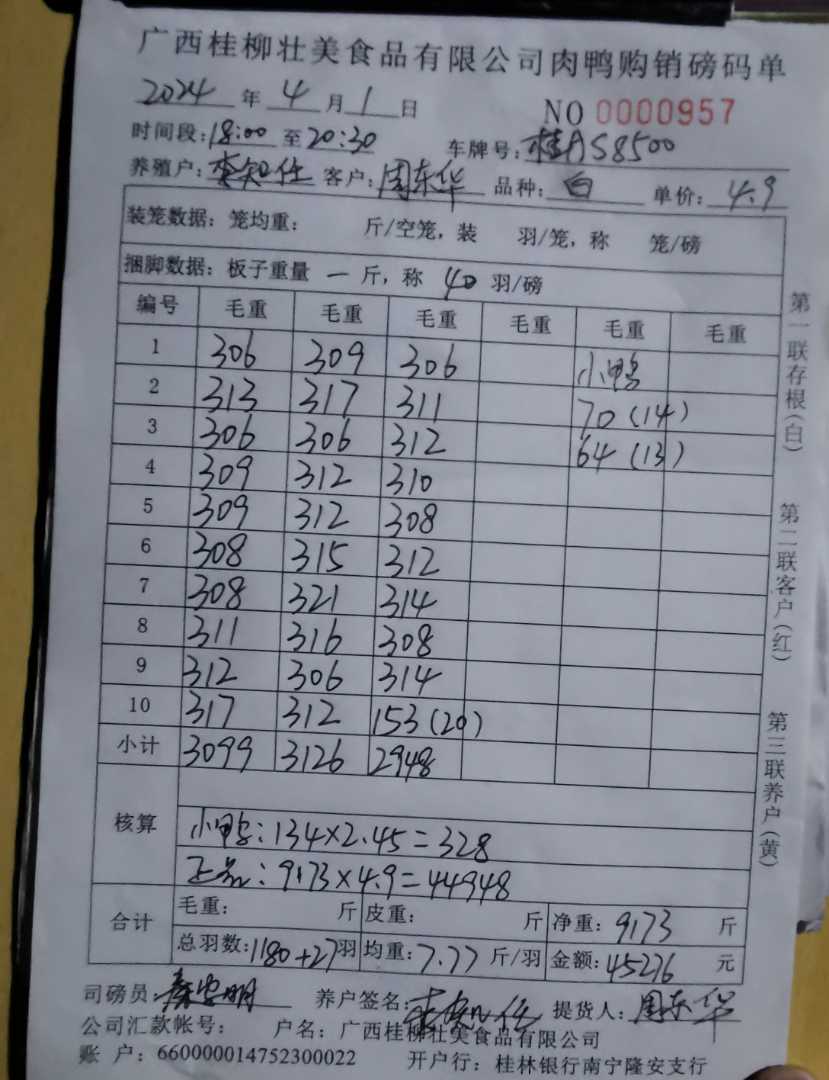 广西桂柳壮美食品有限公司肉鸭购销磅码单
2024 年 4 月 1 日 NO 0000957
时间段:18:00 至 20:30 车牌号:桂AS8500
养殖户: 客户:周东华 品种:白 单价:4.9
装笼数据: 笼均重: 斤/空笼,装 羽/笼,称 笼/磅
捆脚数据: 板子重量 一 斤,称 40 羽/磅
编号 毛重 毛重 毛重 毛重 毛重 毛重
1 306 309 306 小鸭
2 313 317 311 70 (14)
3 306 306 312 64 (13)
4 309 312 310
5 309 312 308
6 308 315 312
7 308 321 314
8 311 316 308
9 312 306 314
10 317 312 153 (20)
小计 3099 3126 2948
核算
小鸭: 134×2.45=328
正品: 9173×4.9=44948
合计 毛重: 斤 皮重: 斤 净重: 9173 斤
总羽数:1180+27羽 均重:7.77 斤/羽 金额:45276 元
司磅员: 养户签名: 提货人:周东华
公司汇款帐号: 户名:广西桂柳壮美食品有限公司
账 户:660000014752300022 开户行:桂林银行南宁隆安支行
第一联存根(白)
第二联客户(红)
第三联养户(黄)